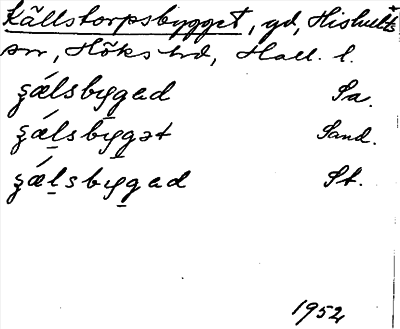 Källstorpsbygget, gd, Hishults
sn, Höks hd, Hall. l.
ʒǽlsbygad Sa.
ʒǽlsbygət Sand.
ʒǽlsbygad St.
1952